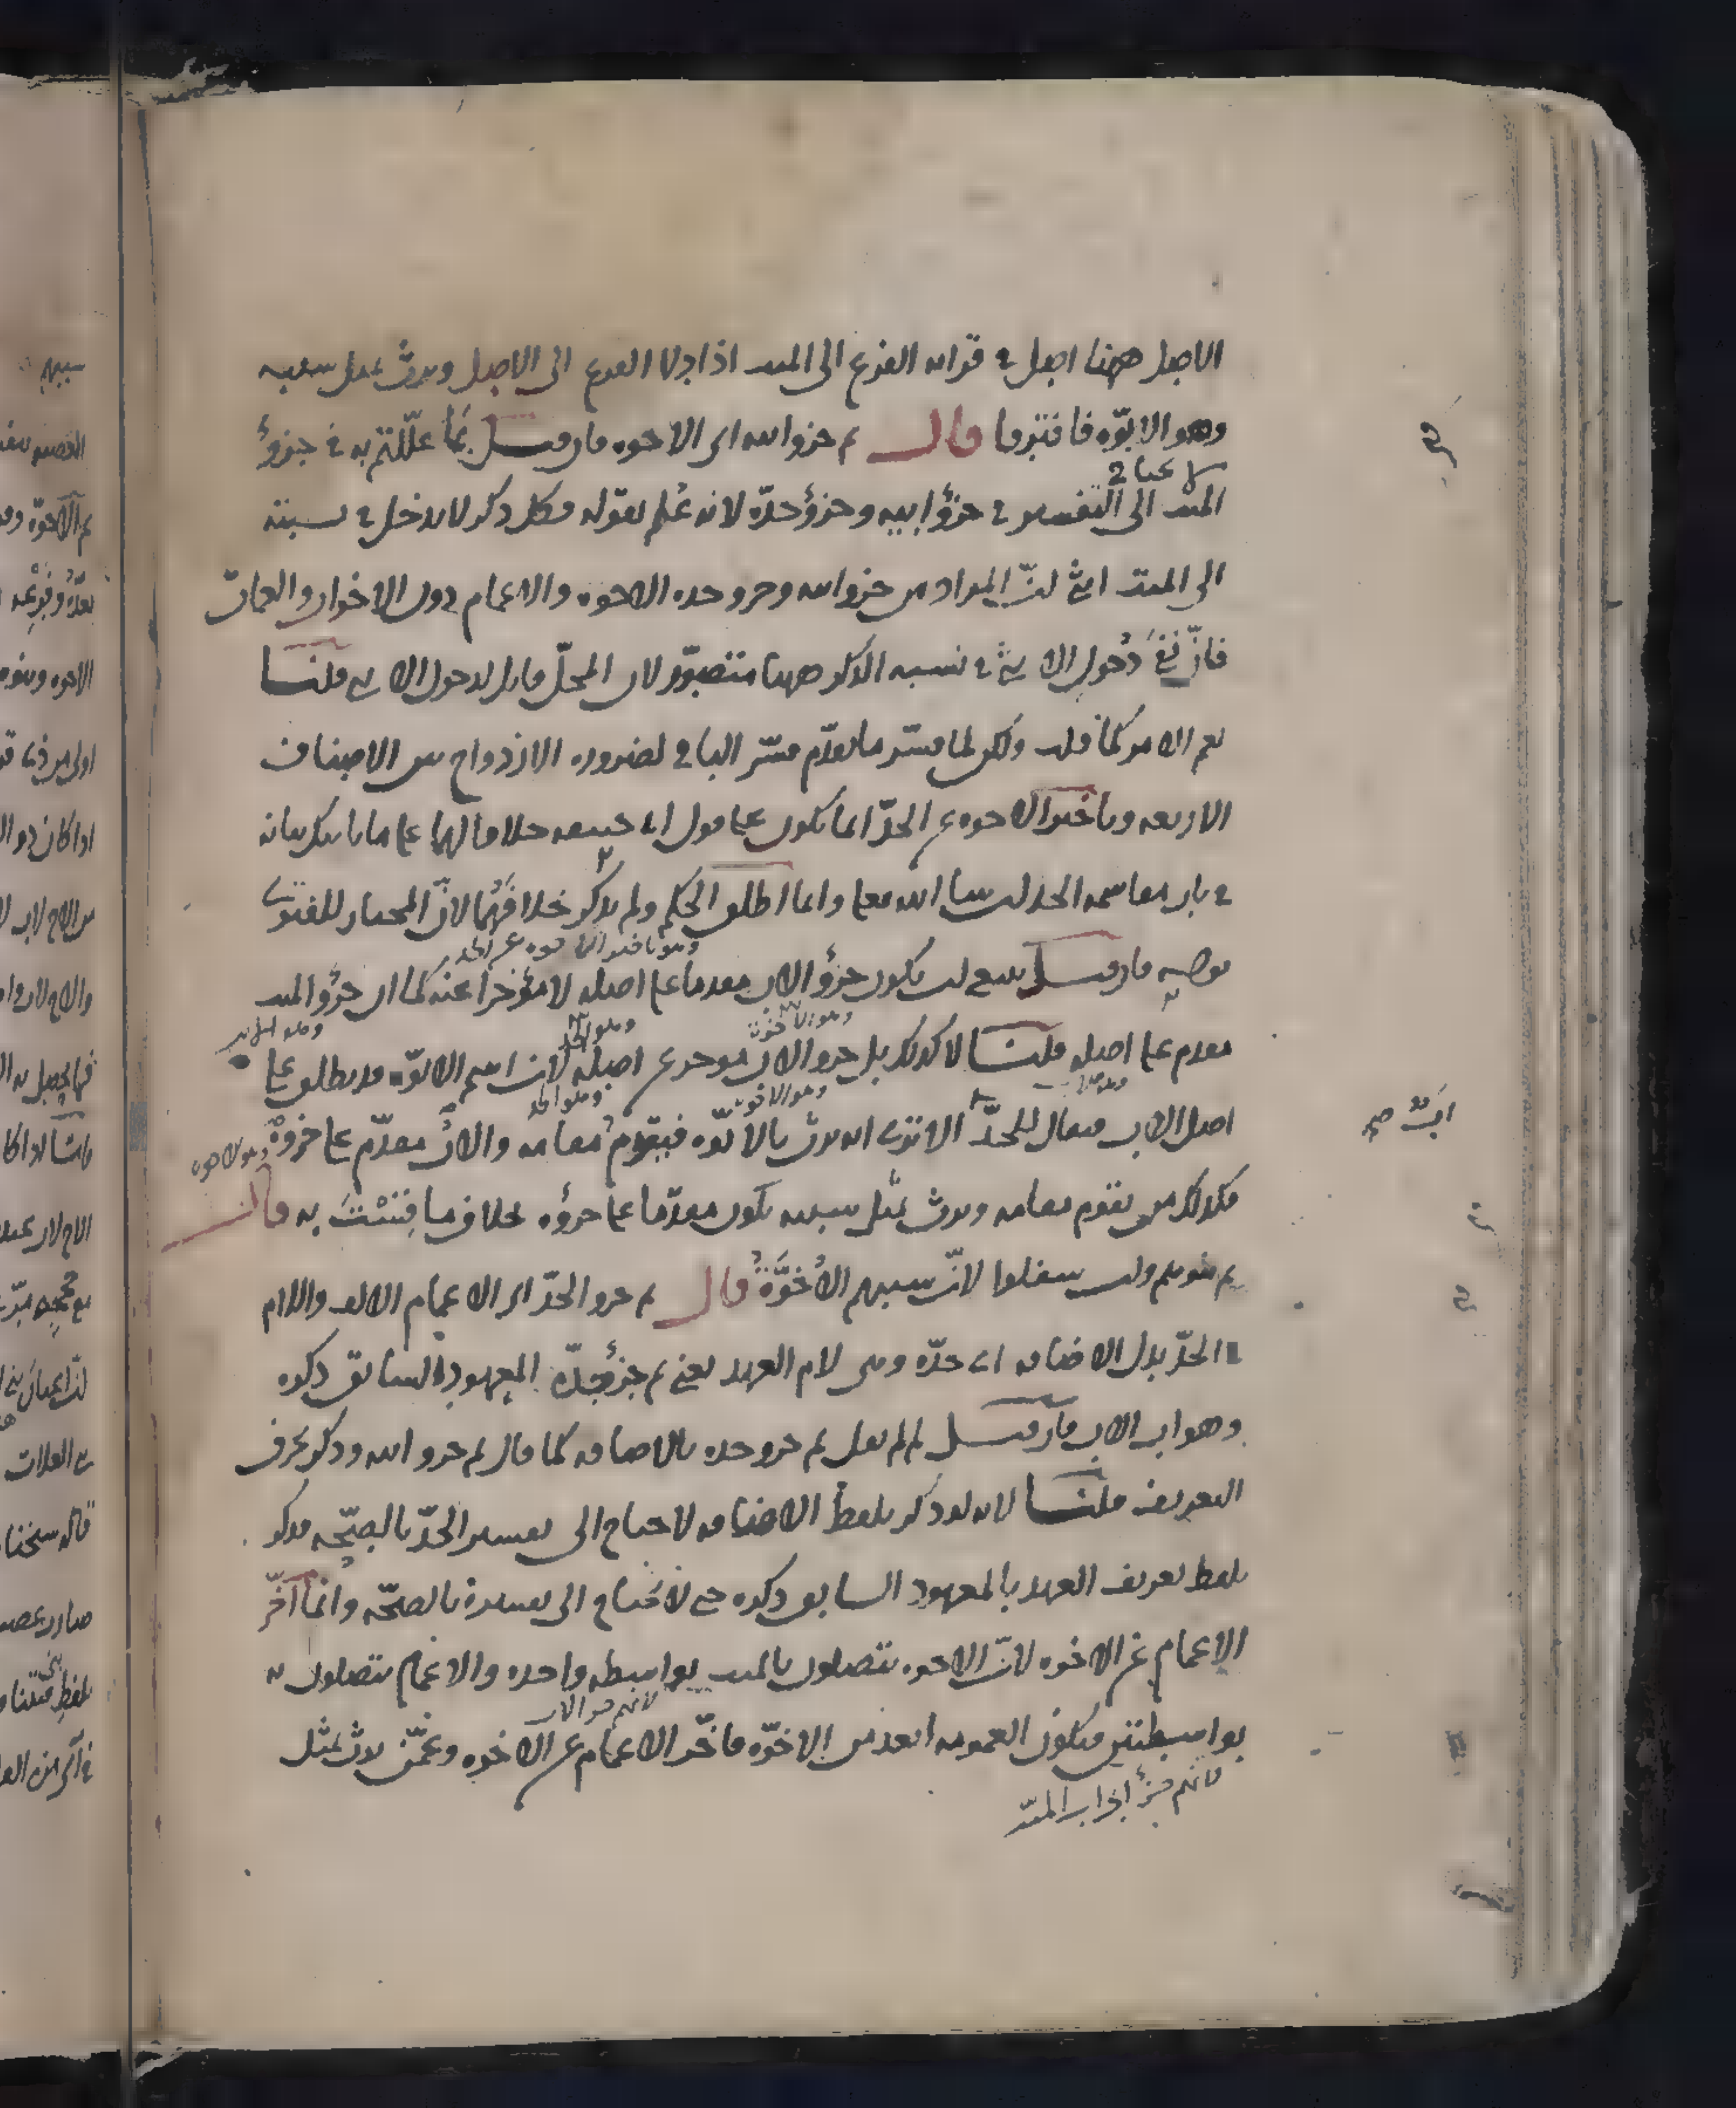 الاصل ههنا اصل في قرابة الفرع الى الميت اذا ادلا الفرع الى الاصل ويرث بمثل سببه
وهو الابوة فافترقا قال ثم جزء ابيه اى الاخوة فان قيل بما عللتم به في جزؤ
الميت الى التفسير في جزؤ ابيه وجزؤ جده لانه علم بقوله فكل ذكر لا يدخل في نسبته
الى الميت انثى ان المراد من جزء ابيه وجزء جده الاخوة والاعمام دون الاخوات والعمات
فان نفى دخول الانثى في نسبة الذكر ههنا متصور لان المحل قابل لدخول الانثى قلنا
نعم الامر كما قلت ولكن لما فسر ما تقدم فسر الباقي لضرورة الازدواج بين الاصناف
الاربعة وتاخير الاخوة عن الجد انما يكون على قول ابى حنيفة خلافا لهما على ما ياتيك بيانه
في باب مقاسمة الجد ان شاء الله تعالى وانما اطلق الحكم ولم يذكر خلافهما لان المختار للفتوى
وهو تاخير الاخوة عن الجد
قوله فان قيل ينبغي ان يكون جزؤ الاب مقدما على اصله لا مؤخرا عنه كما ان جزؤ الميت
وهو الاخوة وهو الجد وهو الابن
مقدم على اصله قلنا لا كذلك بل جزء الاب مؤخر عن اصله لان اسم الابوة قد يطلق على
وهو الاخوة وهو الجد
اصل الاب فيقال للجد الا ترى انه يرث بالابوة فيقوم مقامه والاب مقدم على جزؤه وهو الاخوة
اب صح
فكذلك من يقوم مقامه ويرث بمثل سببه يكون مقدما على جزؤه بخلاف ما قست به قال
ثم بنوهم وان سفلوا لان سببهم الاخوة قال ثم جزء الجد اى الاعمام الالف واللام
الجد بدل الاضافة اى جده وهي لام العهد يعني ثم جزؤ جده المعهود السابق ذكره
وهو اب الاب فان قيل لم لم يقل ثم جزء جده بالاضافة كما قال ثم جزء ابيه وذكر بحرف
التعريف قلنا لانه لو ذكر بلفظ الاضافة لاحتاج الى تفسير الجد بالصحة فذكر
بلفظ تعريف العهد بالمعهود السابق ذكره حتى لا يحتاج الى تفسيره بالصحة وانما اخر
الاعمام عن الاخوة لان الاخوة يتصلون بالميت بواسطة واحدة والاعمام يتصلون به
لانهم جزء الاب
بواسطتين فيكون العمومة ابعد من الاخوة فاخر الاعمام عن الاخوة وعمن يرث بمثل
لانهم جزؤ اب اب الميت